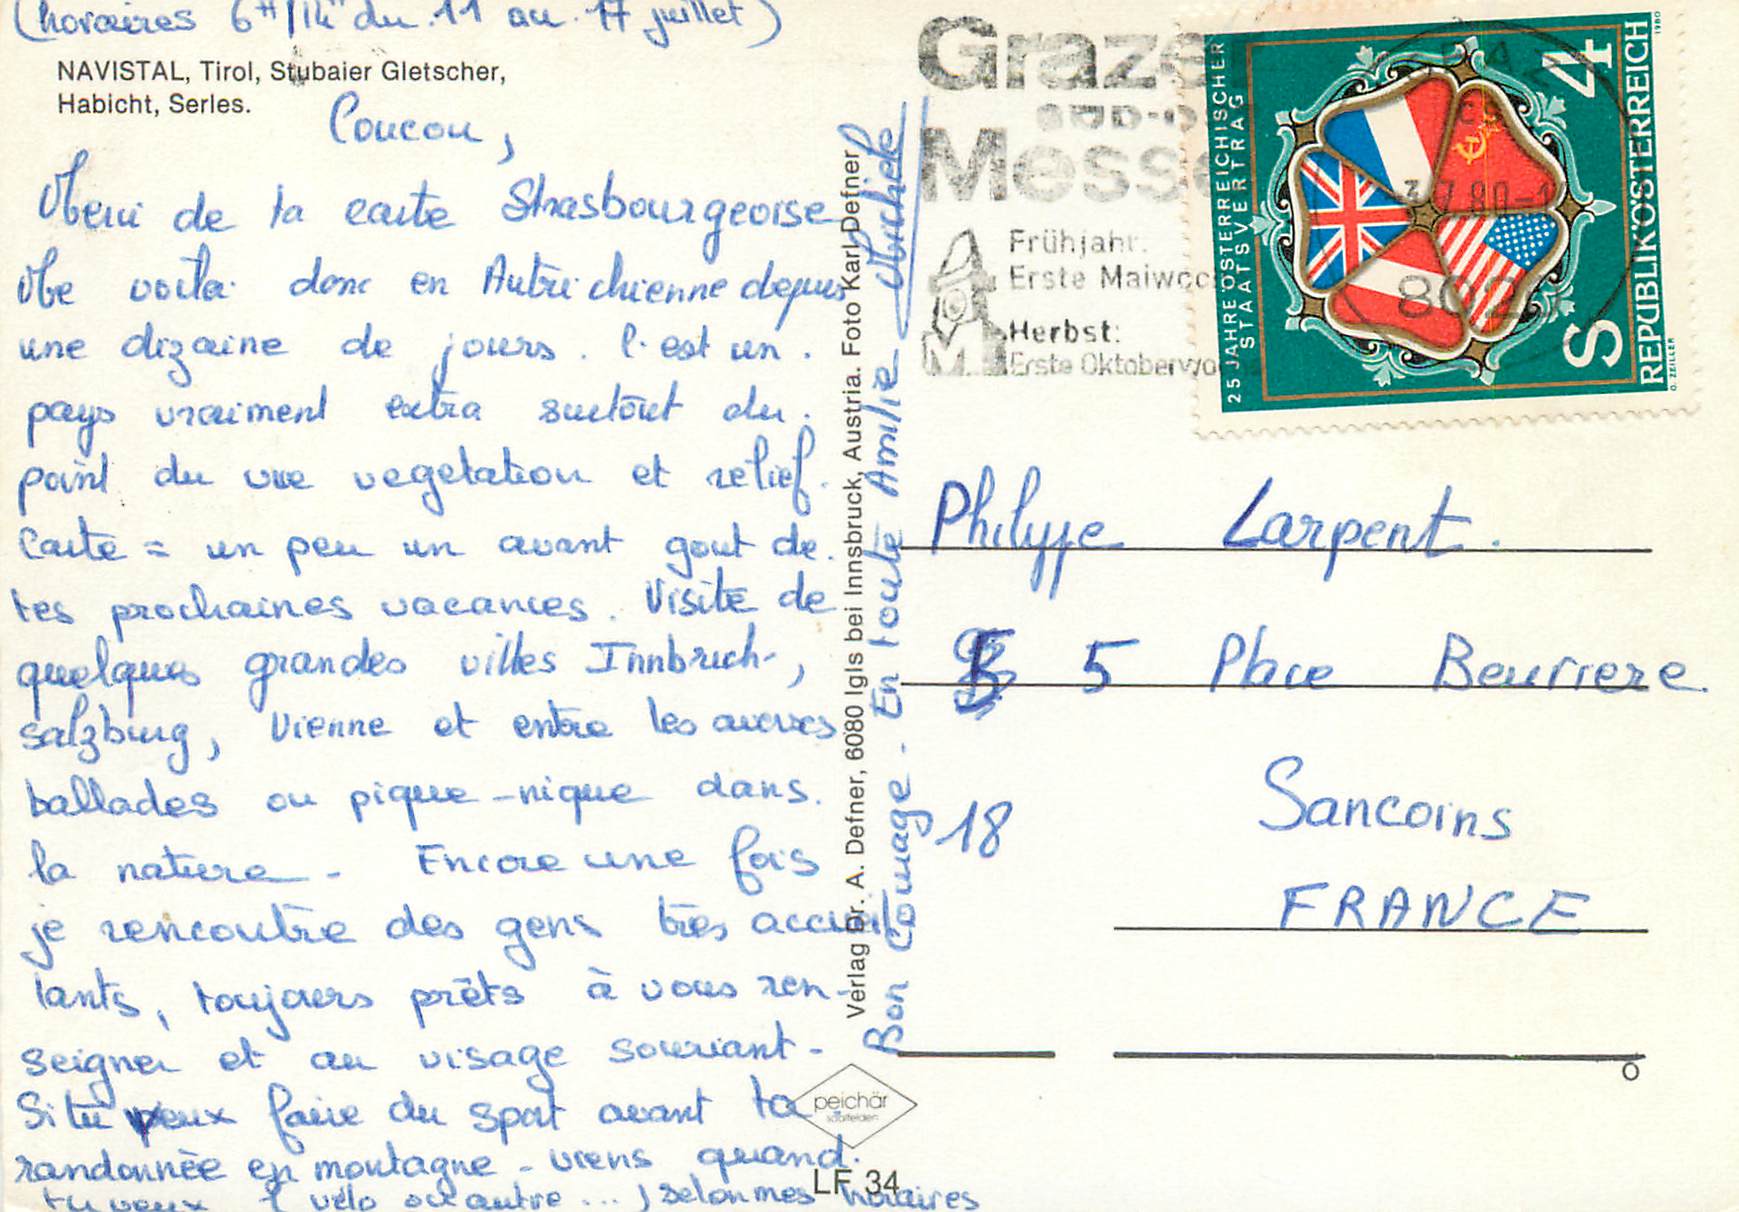 (horaires 6H/14H du 11 au 17 juillet)
NAVISTAL, Tirol, Stubaier Gletscher,
Habicht, Serles.
Coucou,
Merci de ta carte Strasbourgeoise
Me voila donc en Autrichienne depuis
une dizaine de jours. C'est un
pays vraiment extra surtout du
point du vue vegetation et relief.
Carte = un peu un avant gout de
tes prochaines vacances. Visite de
quelques grandes villes Innbruch,
Salzburg, Vienne et entre les averses
ballades ou pique-nique dans
la nature - Encore une fois
je rencontre des gens très accueil
lants, toujours prêts à vous ren-
seigner et au visage souriant -
Si tu veux faire du sport avant ta
randonnée en montagne - viens quand
tu veux (vélo ou autre ...) selon mes horaires
Bon Courage. En toute Amitié Michele
Verlag Dr. A. Defner, 6080 Igls bei Innsbruck, Austria. Foto Karl Defner
peichär
saalfelden
LF 34
Graze
SÜD-O
Messe
Frühjahr:
Erste Maiwoc
Herbst:
Erste Oktoberwo
M
25 JAHRE ÖSTERREICHISCHER
STAATSVERTRAG
S 4
REPUBLIK ÖSTERREICH
1980
O. ZEILLER
RAZ
-3.7.80-1
802
Philippe Larpent.
5 Place Beurriere
18 Sancoins
FRANCE